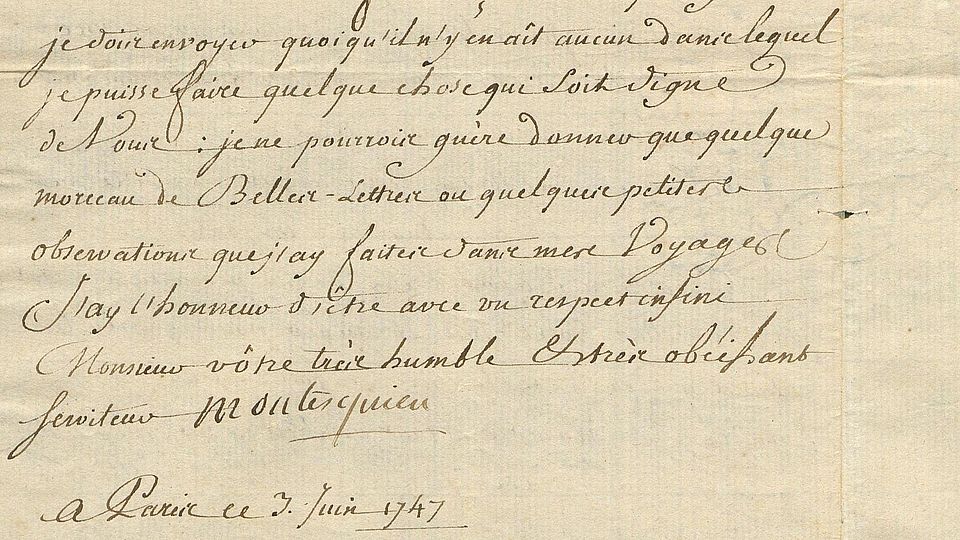 je dois envoyer quoiqu'il n'y en aît aucun dans lequel
je puisse faire quelque chose qui soit digne
de Vous : je ne pourrois guère donner que quelque
morceau de Belles-Lettres ou quelques petites
observations que j'ay faites dans mes Voyages
J'ay l'honneur d'être avec un respect infini
Monsieur vôtre très humble & très obéissant
serviteur Montesquieu
a Paris ce 3. Juin 1747